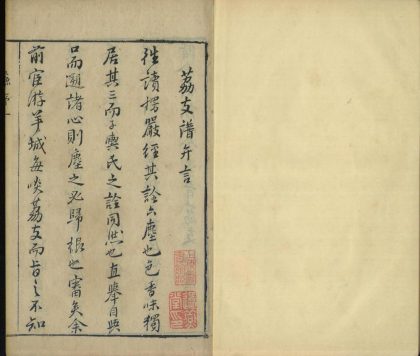 荔支譜弁言
往讀楞嚴經其詮六塵也色香味獨
居其三而子輿氏之詮同然也直舉目與
口而遡諸心則塵之必歸根也審矣余
前宦游羊城每啖荔支而旨之不知